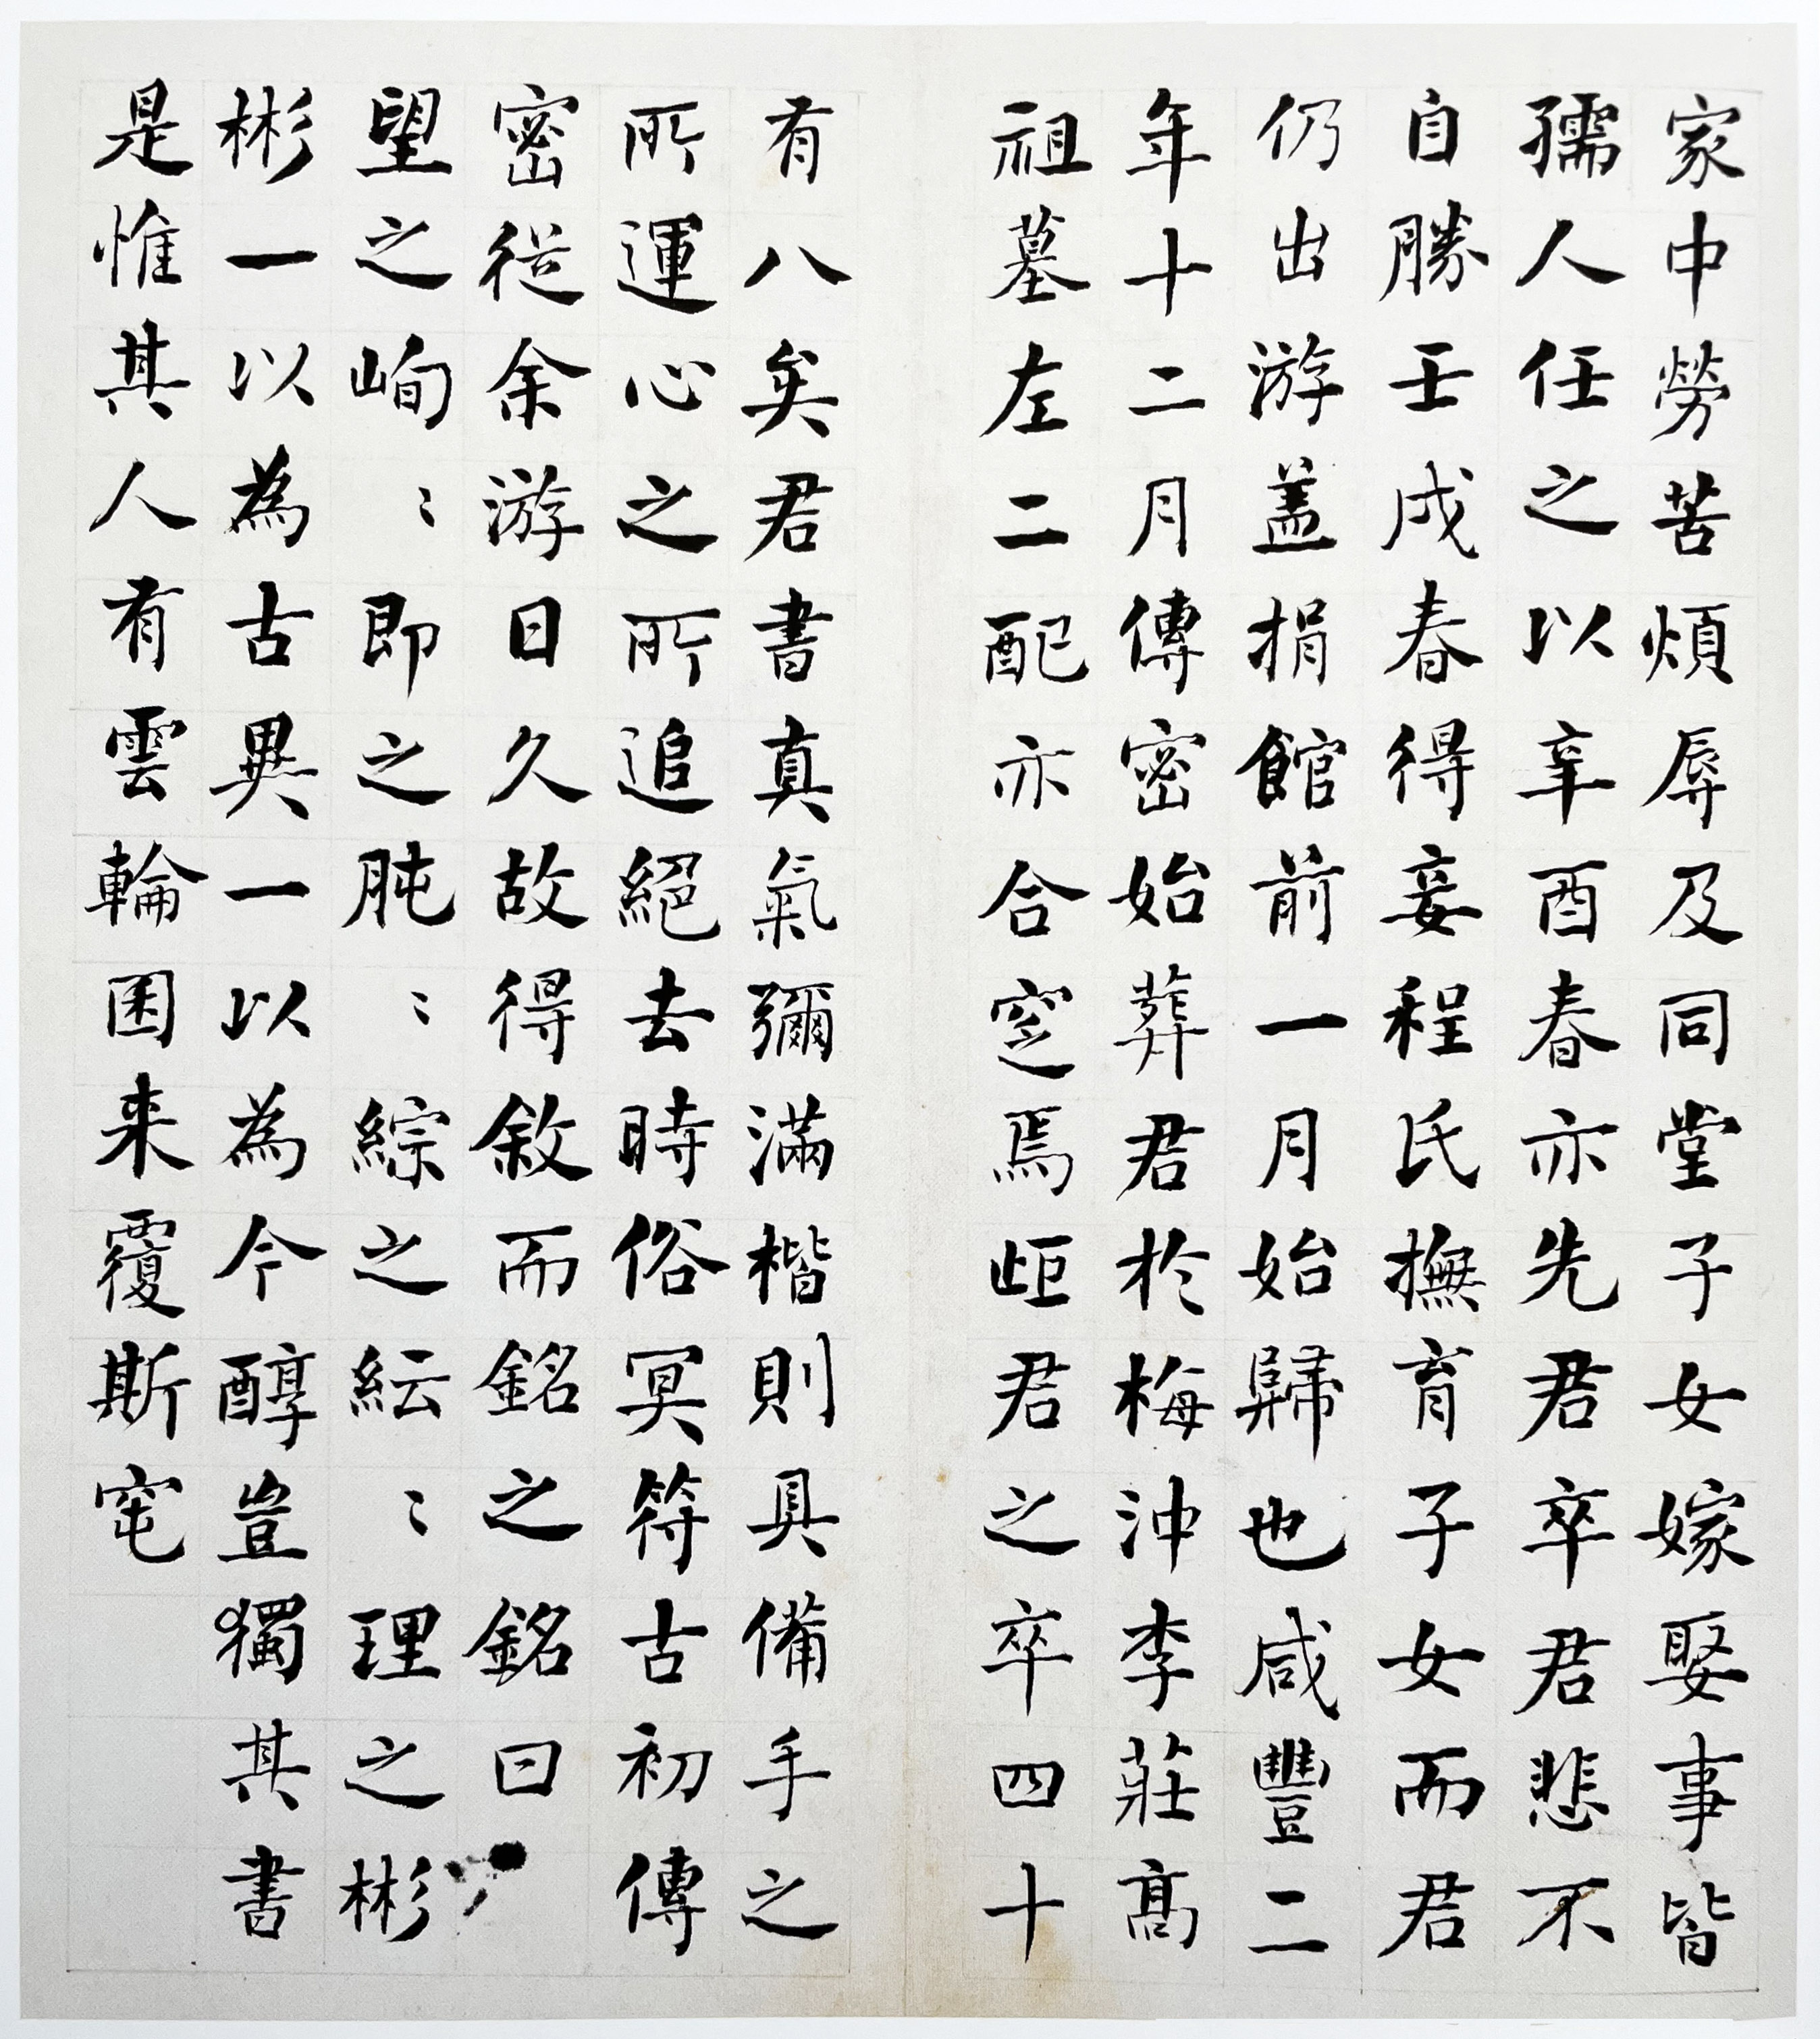 家中勞苦煩辱及同堂子女嫁娶事皆
孺人任之以辛酉春亦先君卒君悲不
自勝壬戌春得妾程氏撫育子女而君
仍出游盖捐館前一月始歸也咸豐二
年十二月傳密始葬君於梅沖李莊高
祖墓左二配亦合窆焉歫君之卒四十
有八矣君書真氣彌滿楷則具備手之
所運心之所追絕去時俗冥符古初傳
密從余游日久故得敘而銘之銘曰
望之峋〻即之肫〻綜之紜〻理之彬
彬一以為古異一以為今醇豈獨其書
是惟其人有雲輪囷来覆斯窀